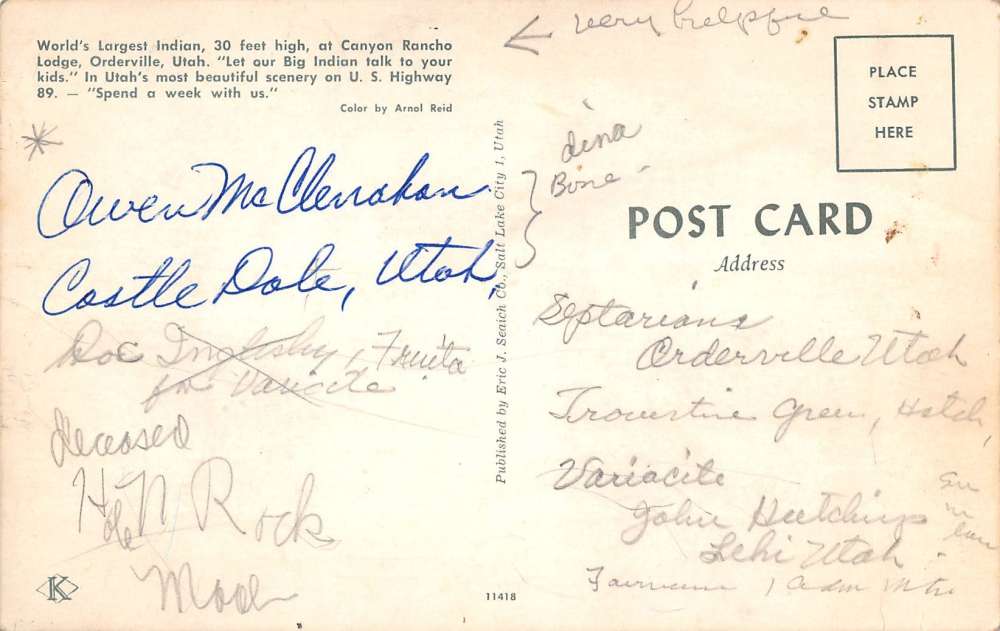 World's Largest Indian, 30 feet high, at Canyon Rancho
Lodge, Orderville, Utah. "Let our Big Indian talk to your
kids." In Utah's most beautiful scenery on U. S. Highway
89. — "Spend a week with us."
Color by Arnol Reid
very helpful
PLACE
STAMP
HERE
dina
Bone
Owen McClenahan
Castle Dale, Utah,
Doc Inglesby, Fruita
for Variacite
deceased
Hole N Rock
Moab
K
Published by Eric J. Seaich Co., Salt Lake City 1, Utah
POST CARD
Address
Septarians
Orderville Utah
Trovertine Green, Hatch,
Variacite
John Hutchings
Lehi Utah
11418